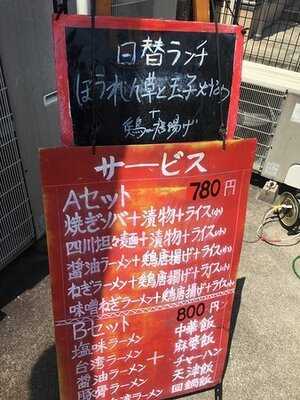 日替ランチ
ほうれん草と玉子
+
鶏の唐揚げ
サービス
Aセット 780円
焼きソバ+漬物+ライス(小)
四川担々麺+漬物+ライス(小)
醤油ラーメン+鶏唐揚げ+ライス(小)
ねぎラーメン+鶏唐揚げ+ライス(小)
味噌ねぎラーメン+鶏唐揚げ+ライス(小)
Bセット 800円
塩味ラーメン 中華飯
台湾ラーメン 麻婆飯
醤油ラーメン + チャーハン
豚骨ラーメン 天津飯
台湾ラーメン 回鍋飯